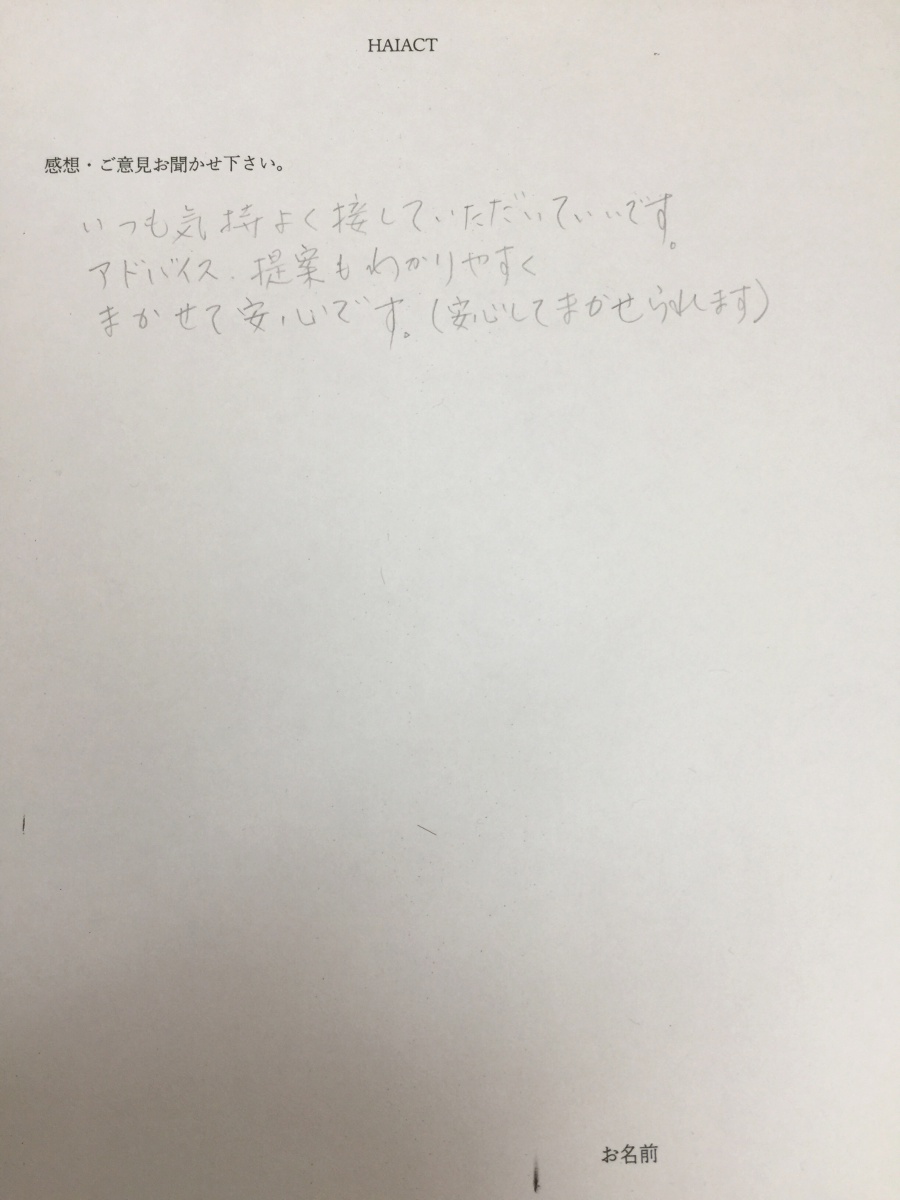 HAIACT
感想・ご意見お聞かせ下さい。
いつも気持よく接していただいていいです。
アドバイス、提案もわかりやすく
まかせて安心です。(安心してまかせられます)
お名前